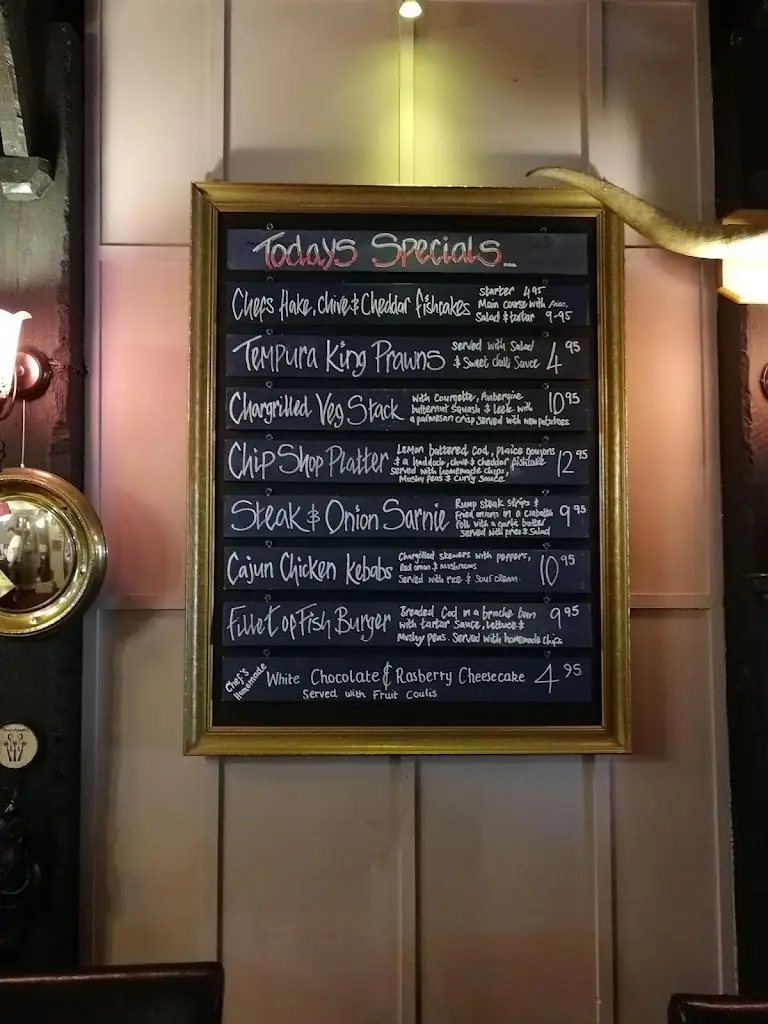 Todays Specials...
Chefs Hake, chive & Cheddar fishcakes
Starter 4.95
Main course with fries,
Salad & tartar 9-95
Tempura King Prawns
served with Salad
& Sweet chilli Sauce
4.95
Chargrilled Veg Stack
with Courgette, Aubergine
butternut Squash & leek with
a parmesan crisp served with new potatoes
10.95
Chip Shop Platter
Lemon battered Cod, plaice goujons
& a haddock, chive & cheddar fishcake
served with homemade chips,
Mushy peas & Curry Sauce
12.95
Steak & Onion Sarnie
Rump steak strips &
Fried onions in a ciabatta
roll with a garlic butter
served with fries & Salad
9.95
Cajun Chicken Kebabs
Chargrilled skewers with peppers,
Red onion & mushrooms
Served with rice & sour cream.
10.95
Fillet of Fish Burger
Breaded Cod in a brioche bun
with tartar Sauce, lettuce &
Mushy peas. Served with homemade chips
9.95
Chef's
Homemade
White Chocolate & Rasberry Cheesecake
Served with Fruit Coulis
4.95